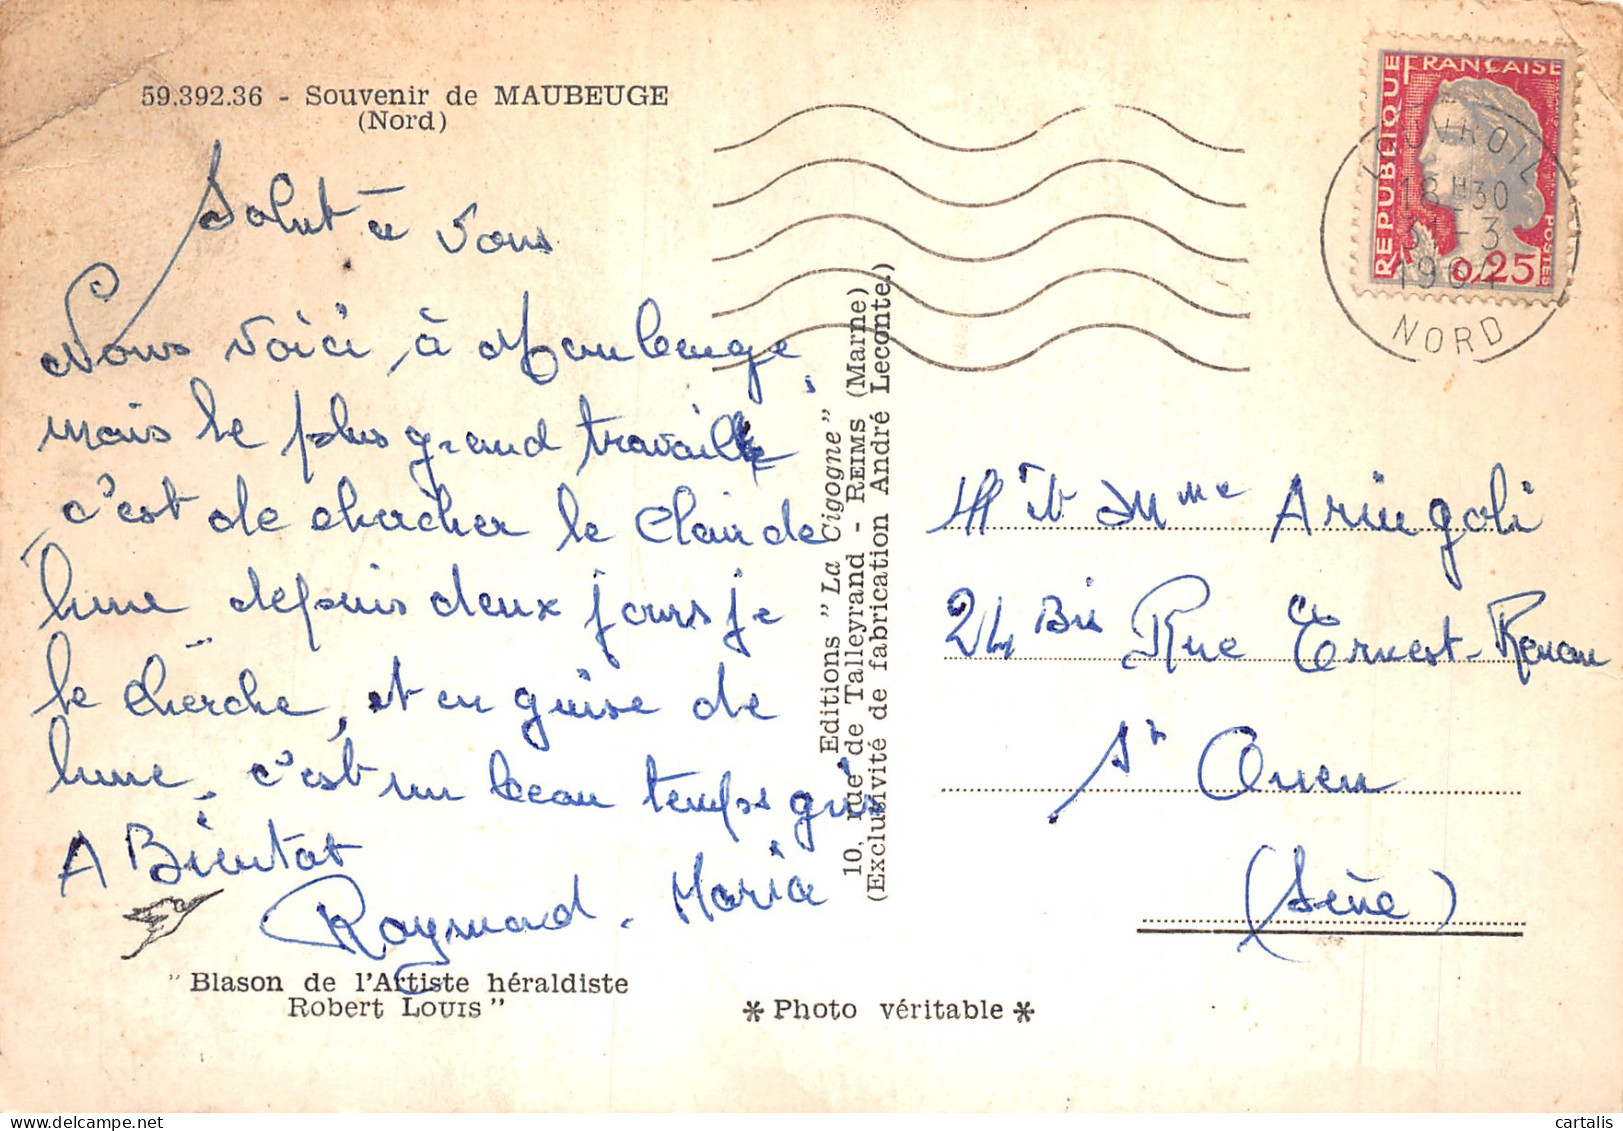 59.392.36 - Souvenir de MAUBEUGE
(Nord)
Salut à vous
Nous voici à Maubeuge,
mais le plus grand travaille
c'est de chercher le Clair de
lune depuis deux jours je
le cherche, et en guise de
lune, c'est un beau temps gris
A Bientot
Raymond - Maria
" Blason de l'Artiste héraldiste
Robert LOUIS "
Editions " La Cigogne "
10, rue de Talleyrand - REIMS (Marne)
(Exclusivité de fabrication André Leconte)
* Photo véritable *
REPUBLIQUE FRANÇAISE
POSTES
0,25
LOUVROIL
18 H 30
31 - 3
1964
NORD
Mr et Mme Aringoli
24 Bis Rue Ernest-Renan
St Ouen
(Seine)
cartalis
www.delcampe.net